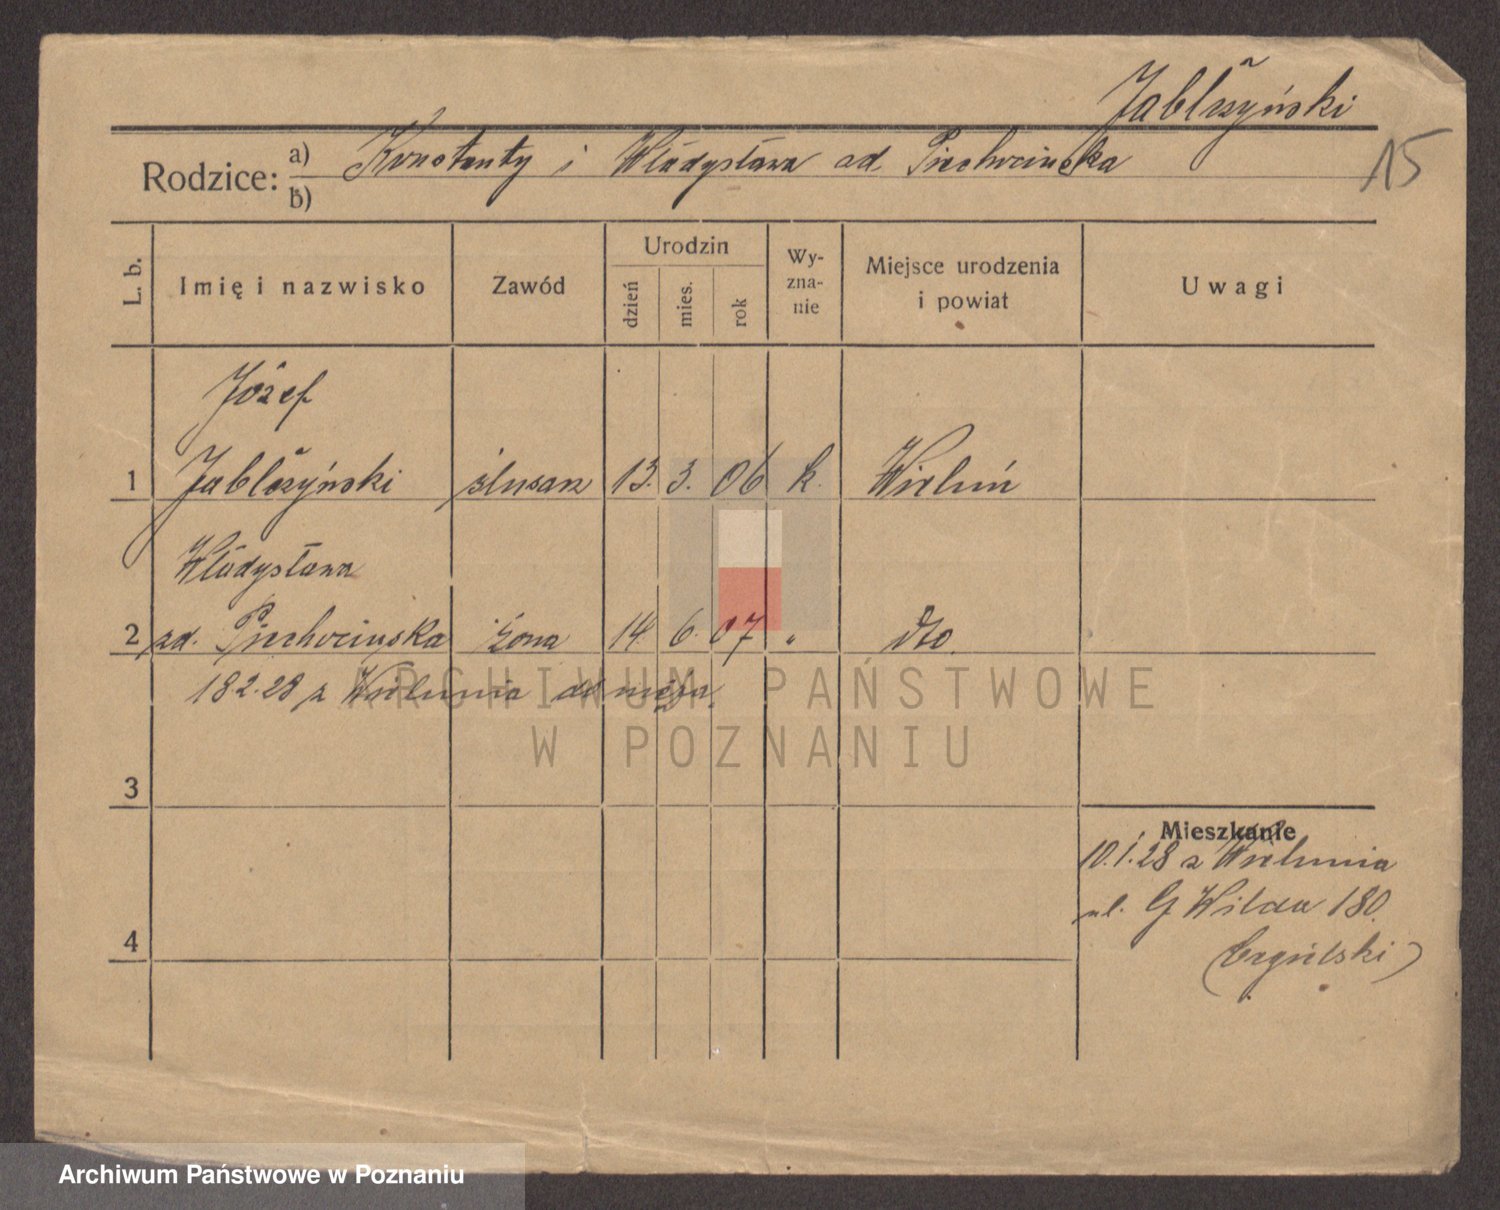 Jabłszyński
15
Rodzice: a) Konstanty i Władysława zd. Piechocińska
b)
L. b.
Imię i nazwisko
Zawód
Urodzin
dzień
mies.
rok
Wy-
zna-
nie
Miejsce urodzenia
i powiat
Uwagi
Józef
1 ślusarz 13. 3. 06 k. Wieluń
Władysława
2 zd. Piechocińska żona 14. 6. 07 " dto.
18 2.28 z Wielunia do męża.
3
Mieszkanie
10.1.28 z Wielunia
4
ul. G Wilda 180.
ARCHIWUM PAŃSTWOWE
W POZNANIU
Archiwum Państwowe w Poznaniu